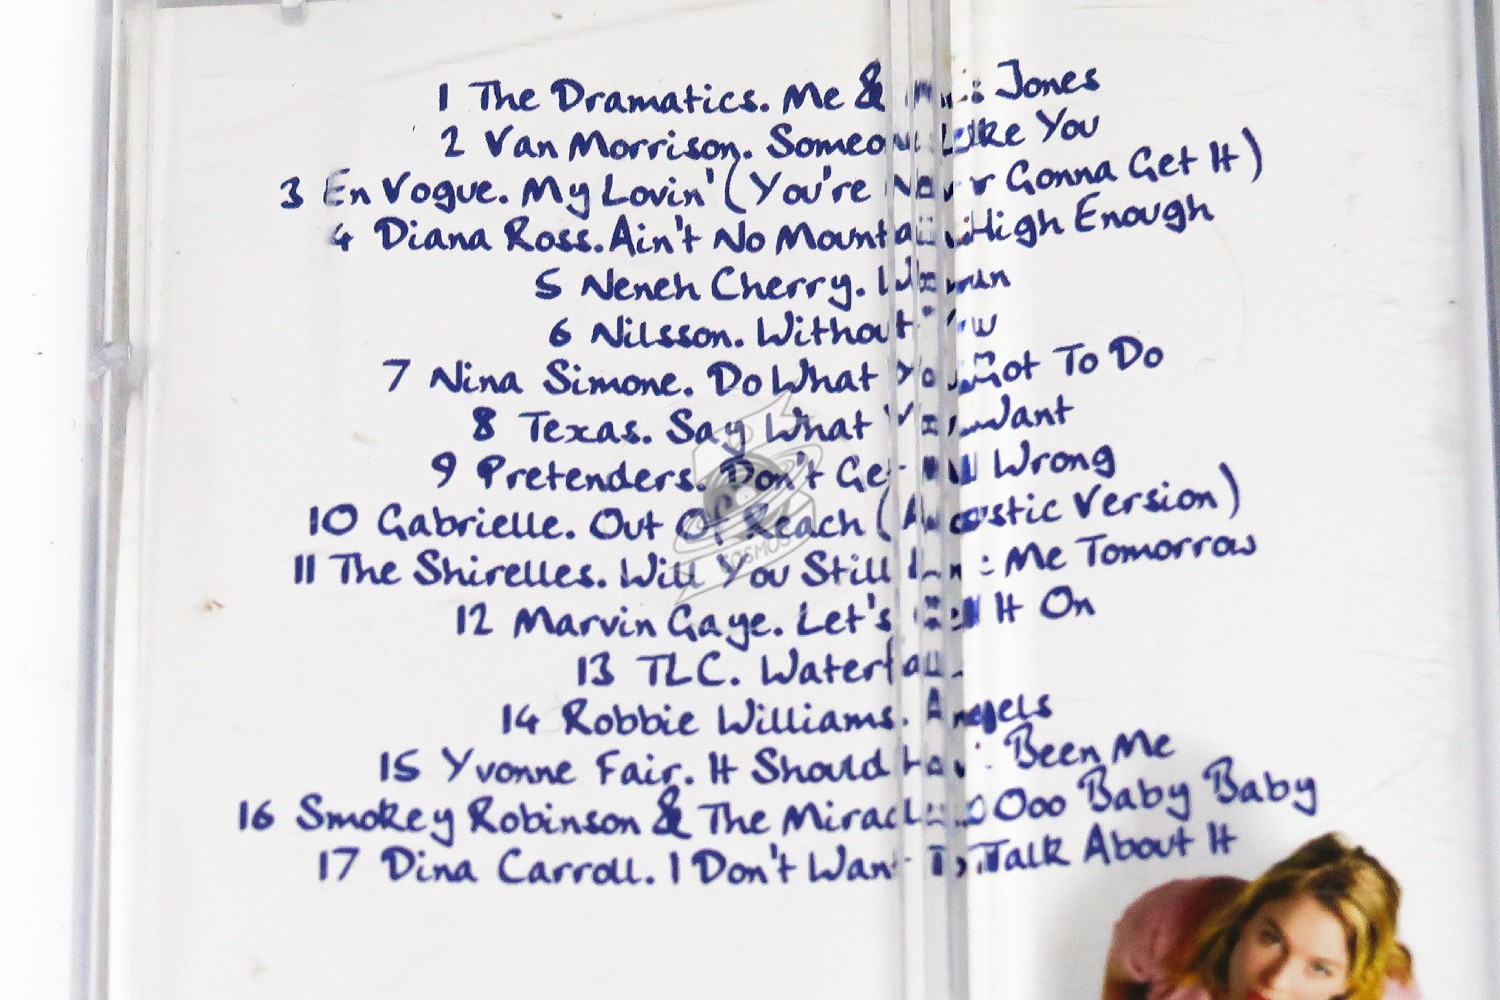 1 The Dramatics. Me & Mrs Jones
2 Van Morrison. Someone Like You
3 En Vogue. My Lovin' (You're Never Gonna Get It)
4 Diana Ross. Ain't No Mountain High Enough
5 Neneh Cherry. Woman
6 Nilsson. Without You
7 Nina Simone. Do What You Got To Do
8 Texas. Say What You Want
9 Pretenders. Don't Get Me Wrong
10 Gabrielle. Out Of Reach (Acoustic Version)
11 The Shirelles. Will You Still Love Me Tomorrow
12 Marvin Gaye. Let's Get It On
13 TLC. Waterfalls
14 Robbie Williams. Angels
15 Yvonne Fair. It Should Have Been Me
16 Smokey Robinson & The Miracles. Ooo Baby Baby
17 Dina Carroll. I Don't Want To Talk About It
COSMOS